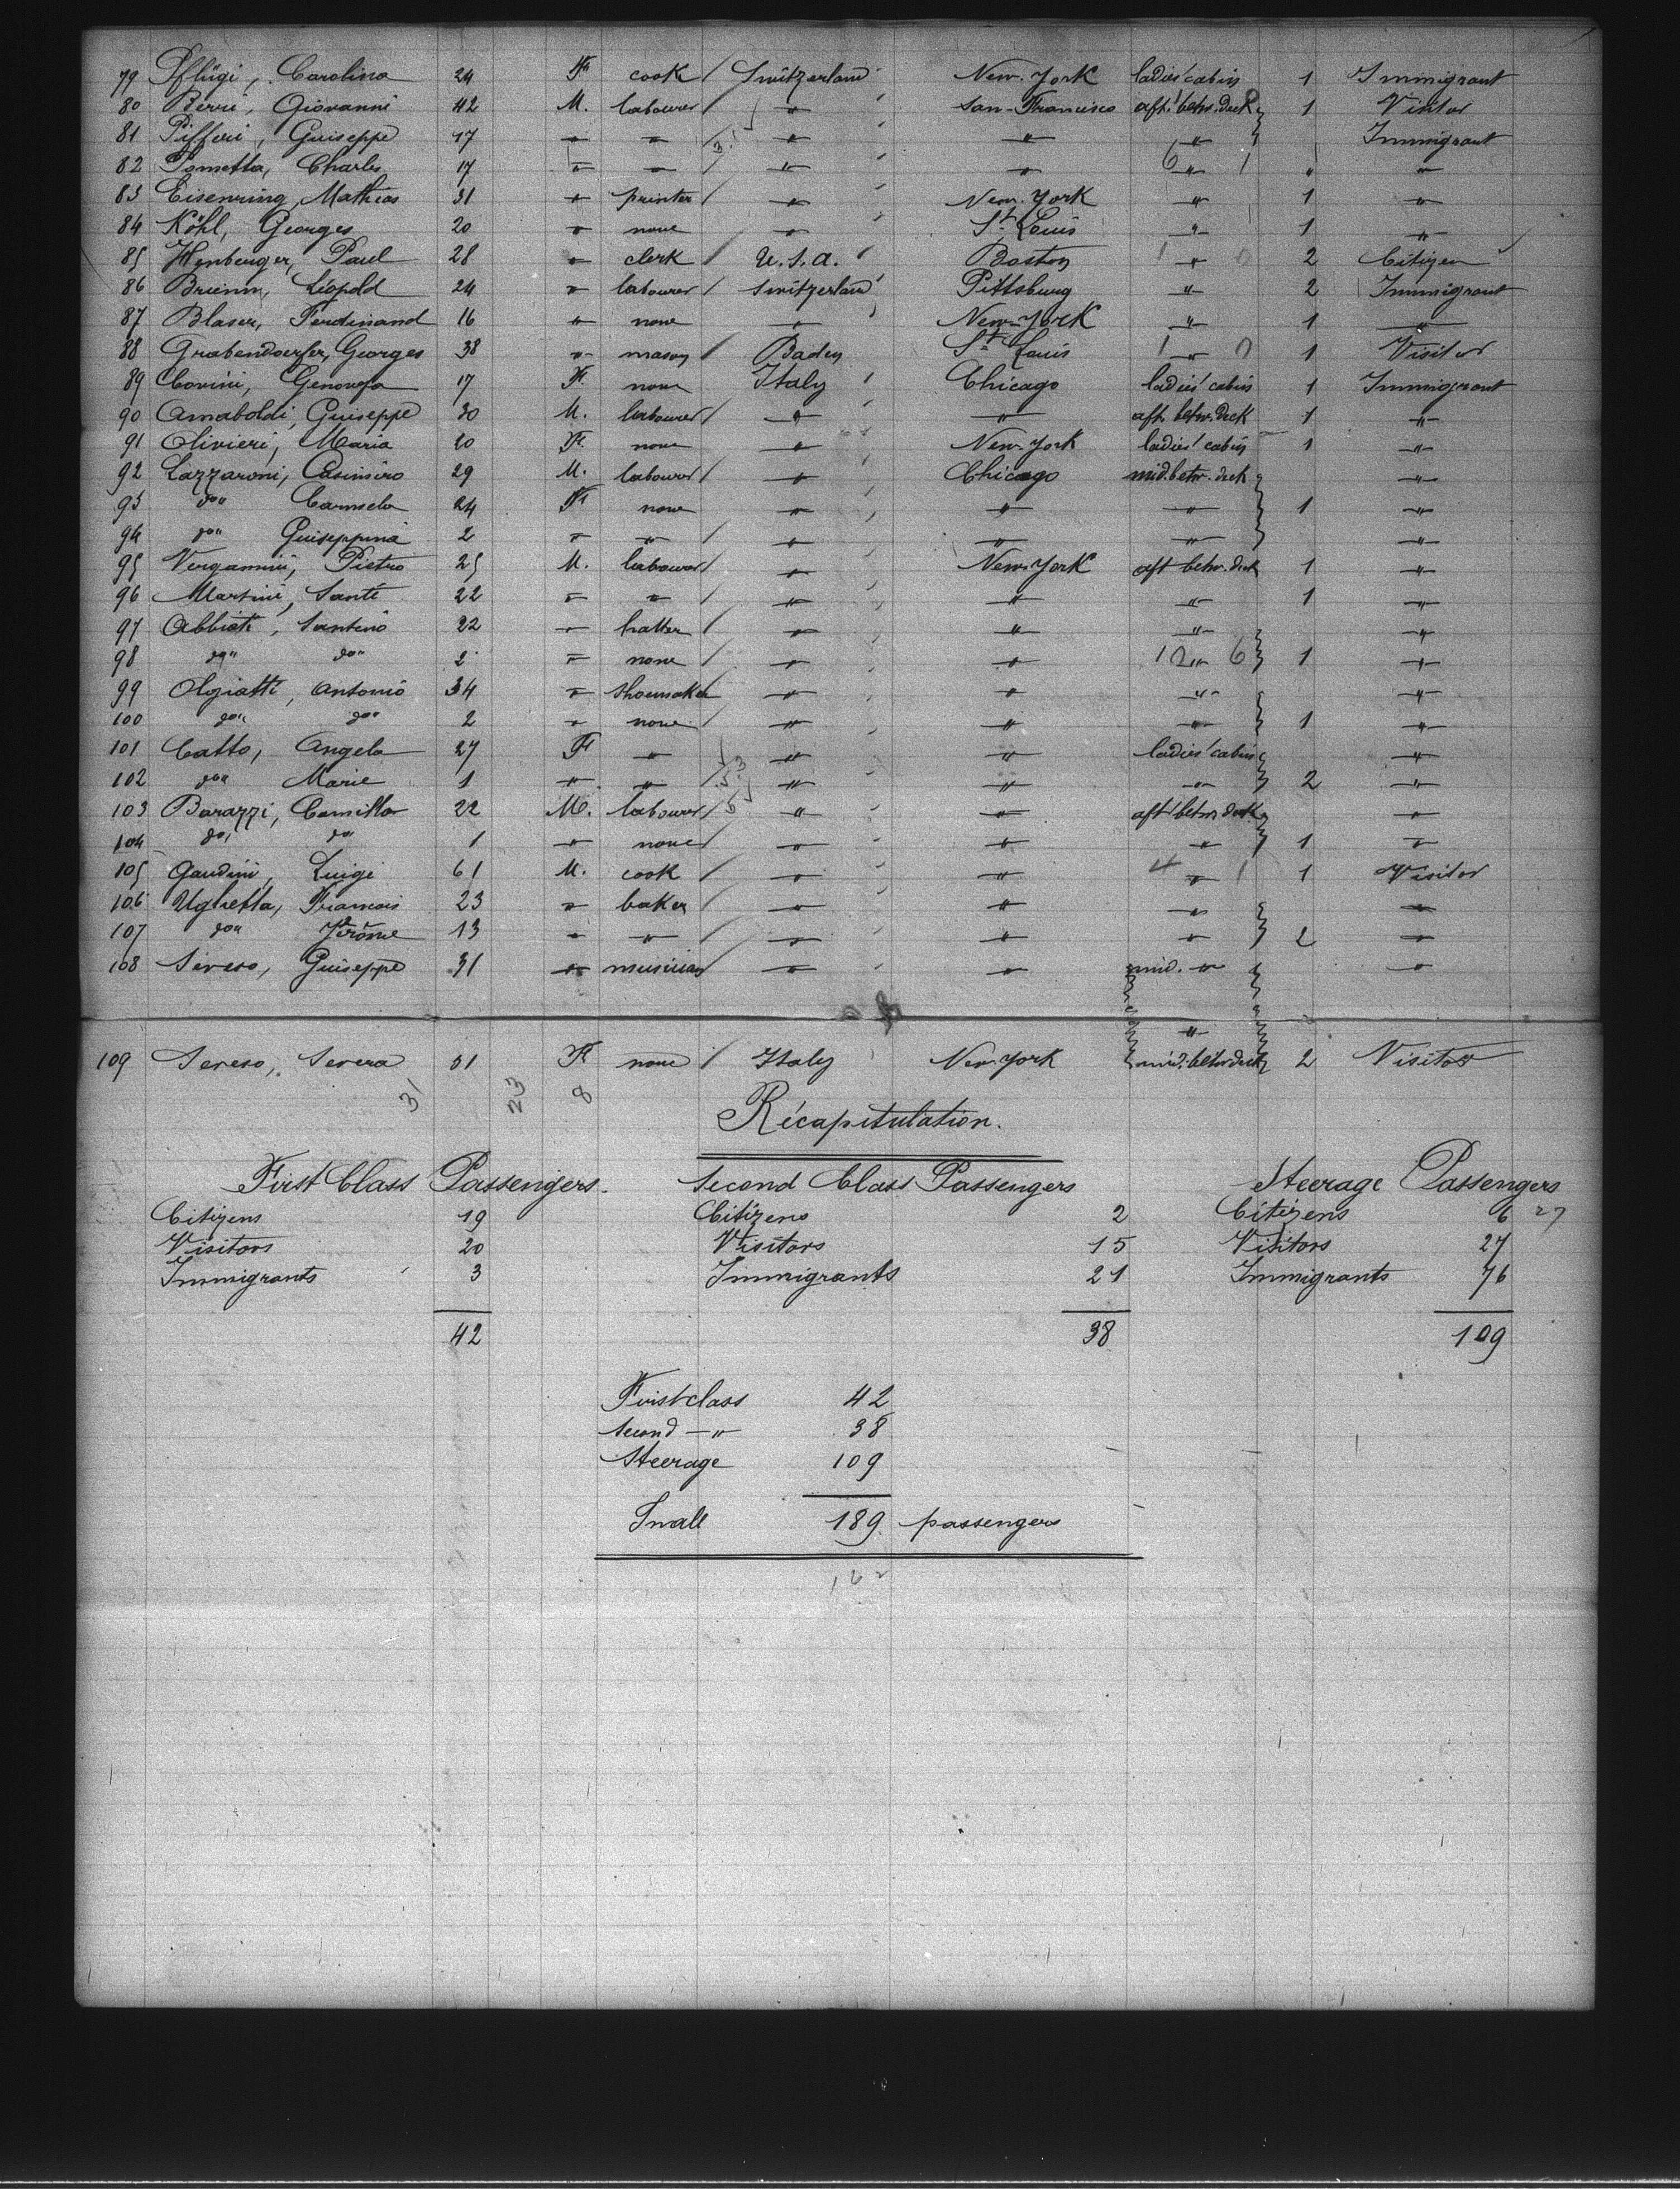 79 Pflügi, Carolina 24 F. cook Switzerland New-York ladies' cabin 1 Immigrant
80 Berri, Giovanni 42 M. labourer " San-Francisco aft. betw. deck 1 Visitor
81 Pifferi, Guiseppe 17 " " " " " Immigrant
82 Pometta, Charles 17 " " " " " " "
83 Eisenring, Mathias 31 " printer " New-York " 1 "
84 Köhl, Georges 20 " none " St. Louis " 1 "
85 Paul 28 " clerk U.S.A. Boston " 2 Citizen
86 Léopold 24 " labourer Switzerland Pittsburg " 2 Immigrant
87 Blaser, Ferdinand 16 " none " New-York " 1 "
88 Grabendoerfer, Georges 38 " mason Baden St. Louis " 1 Visitor
89 Genovefa 17 F. none Italy Chicago ladies' cabin 1 Immigrant
90 Arnaboldi, Guiseppe 30 M. labourer " " aft. betw. deck 1 "
91 Olivieri, Maria 20 F. none " New-York ladies' cabin 1 "
92 Lazzaroni, Casimiro 29 M. labourer " Chicago mid. betw. deck "
93 do" Carmela 24 F none " " " 1 "
94 do" Guiseppina 2 " " " " " "
95 Vergamini, Pietro 25 M. labourer " New-York aft betw. deck 1 "
96 Martini, Santé 22 " " " " " 1 "
97 Abbiati, Santino 22 " hatter " " " "
98 do" do" 2 " none " " " 1 "
99 Olgiatti, Antonio 34 " shoemaker " " " "
100 do" do" 2 " none " " " 1 "
101 Catto, Angela 27 F " " " ladies' cabin "
102 do" Marie 1 " " " " " 2 "
103 Barazzi, Camillo 22 M. labourer " " aft betw. deck "
104 do" do" 1 " none " " " 1 "
105 Gaudini, Luigi 61 M. cook " " " 1 Visitor
106 Ughetta, Francois 23 " baker " " " "
107 do" Jérôme 13 " " " " " 2 "
108 Sereso, Guiseppe 31 " musician " " mid. " "
"
109 Sereso, Severa 31 F none Italy New-York mid. betw deck 2 Visitor
31 23 8
Récapitulation.
First Class Passengers. Second Class Passengers Steerage Passengers
Citizens 19 Citizens 2 Citizens 6 27
Visitors 20 Visitors 15 Visitors 27
Immigrants 3 Immigrants 21 Immigrants 76
42 38 109
First class 42
Second " 38
Steerage 109
In all 189 passengers
162